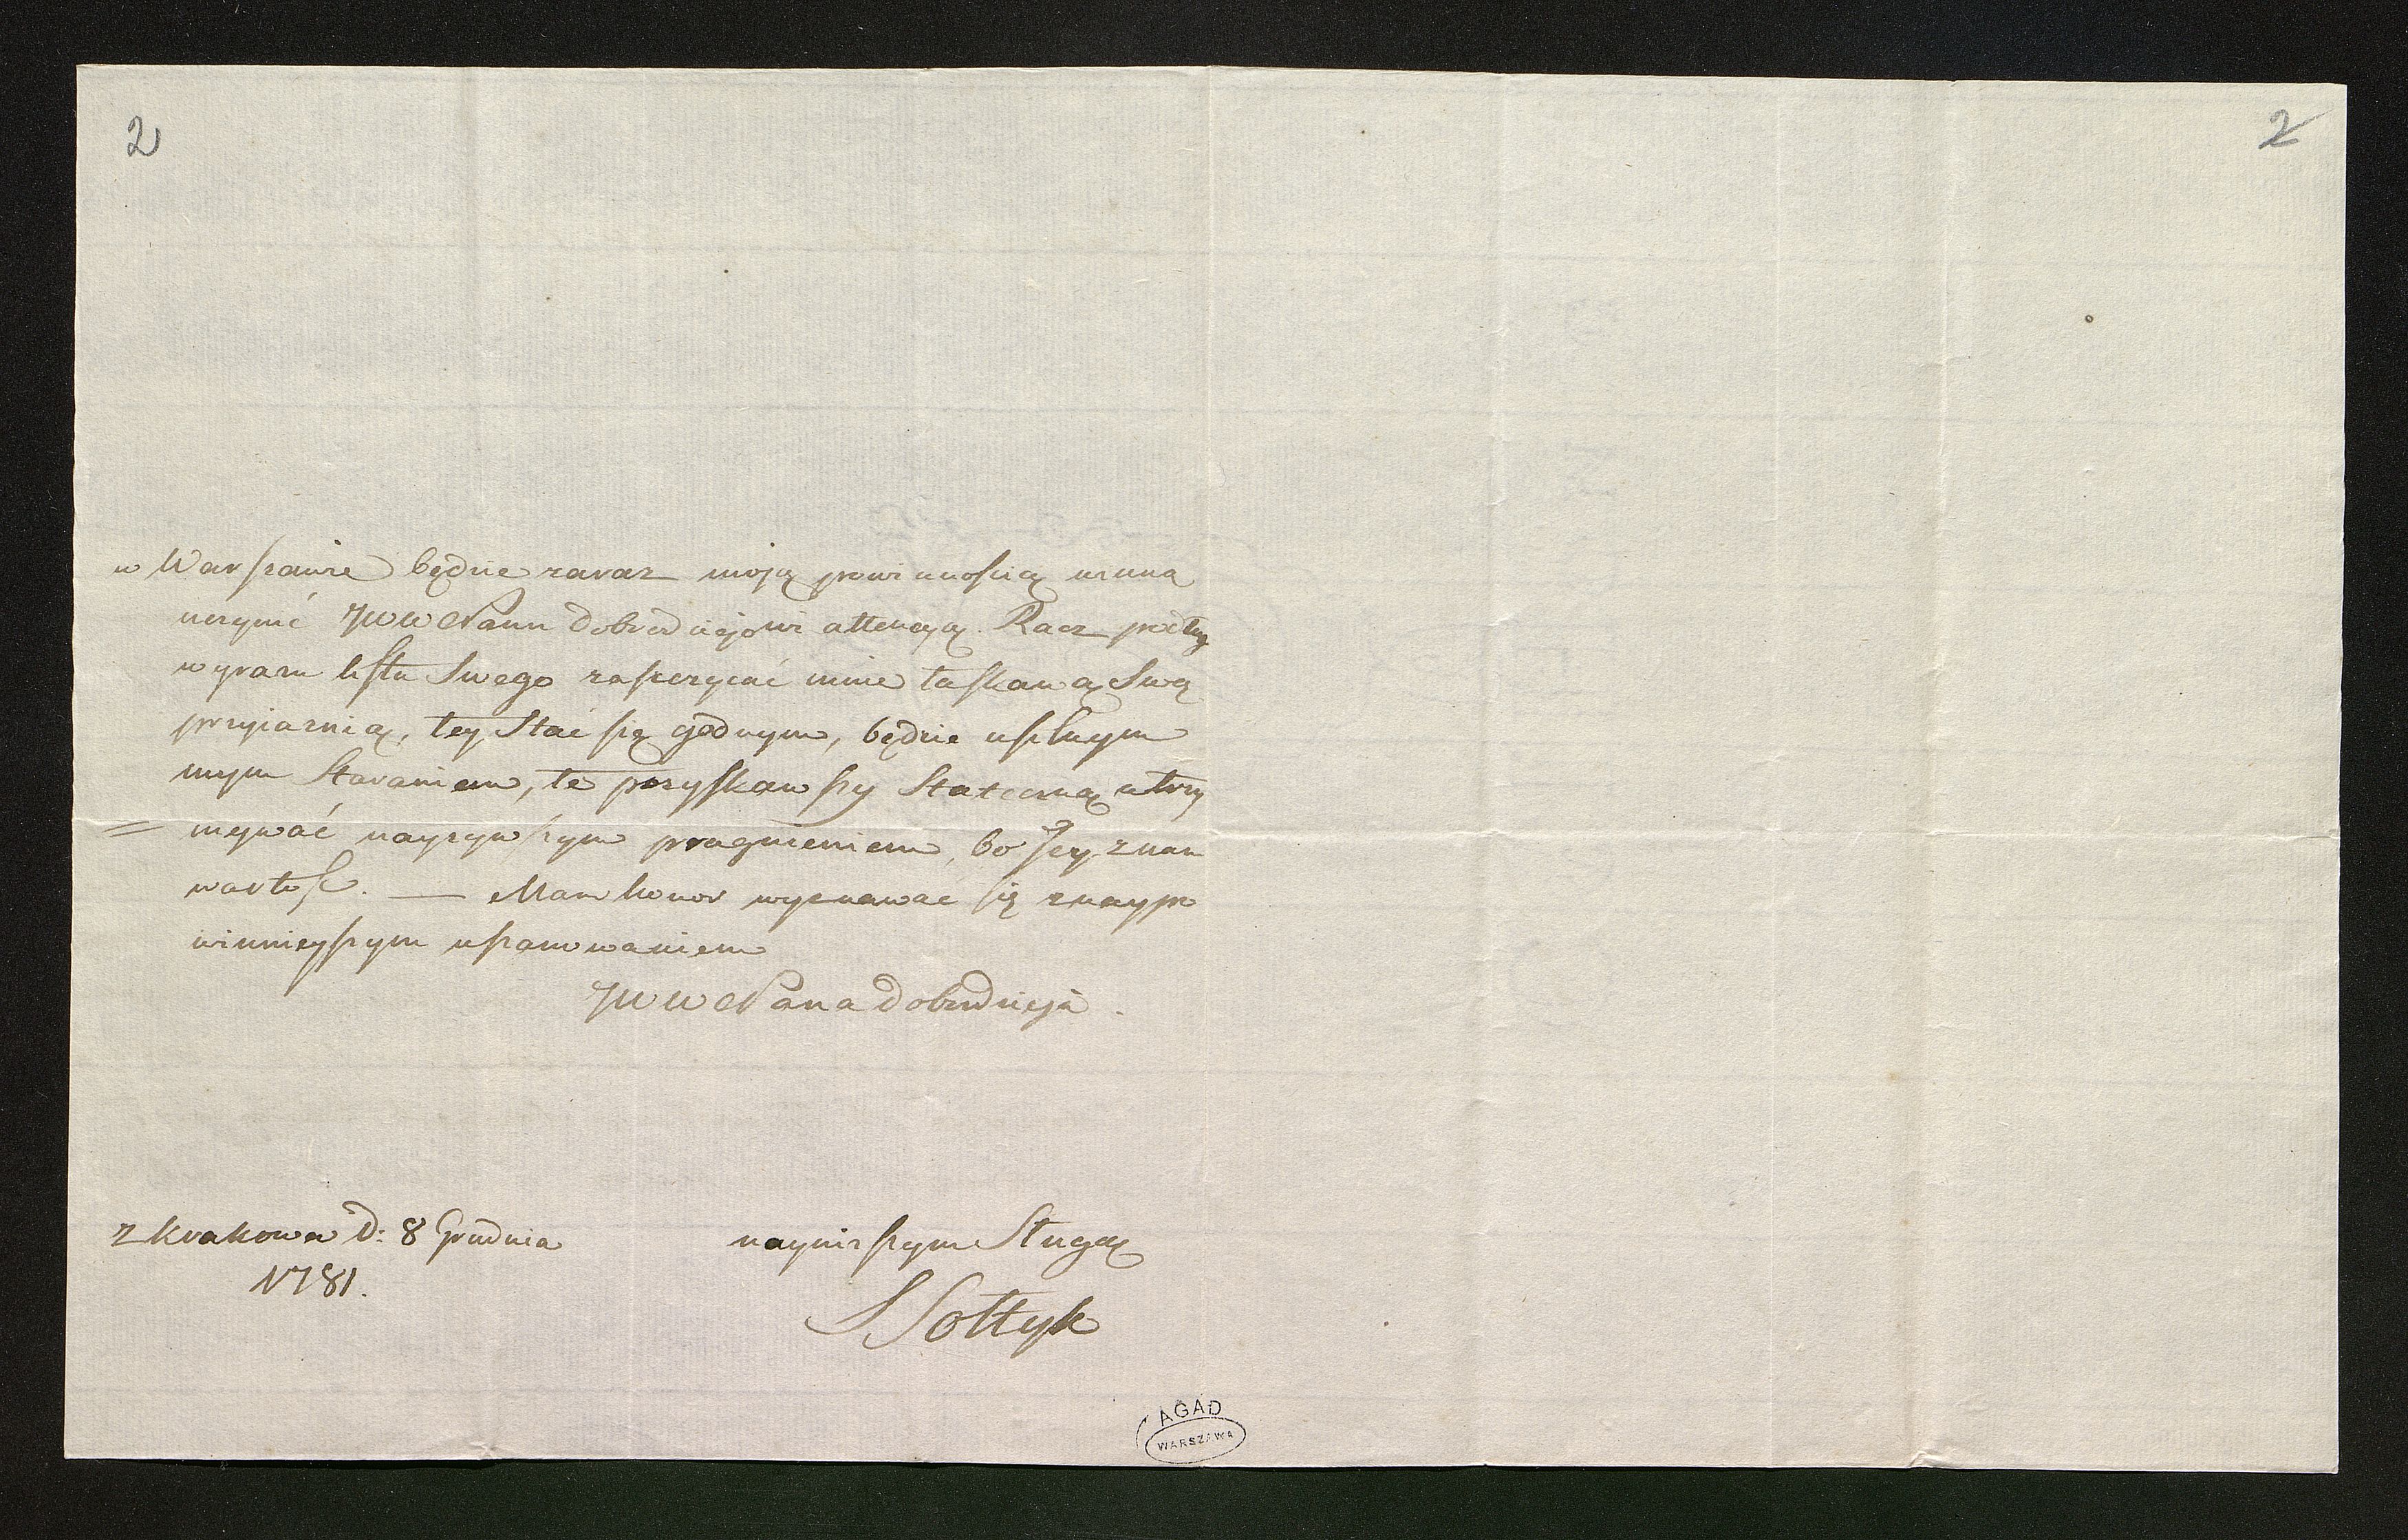 2
2
w Warszawie będzie zaraz moją powinnością winną
uczynić JWW Panu Dobrodziejowi attencyą. Racz podług
wyrazu listu Swego zaszczycać mnie łaskawą Swą
przyiaznią, tey Stać się godnym, będzie usilnym
mym Staraniem, tę pozyskawszy Stateczną utrzy
= mywać nayżywszym pragnieniem, bo Jey znam
wartość. — Mam honor wyznawać się z naypo
winnieyszym uszanowaniem
JWW Pana Dobrodzieja.
z Krakowa D: 8 Grudnia
1781.
nayniższym Sługą
S Sołtyk
AGAD
WARSZAWA